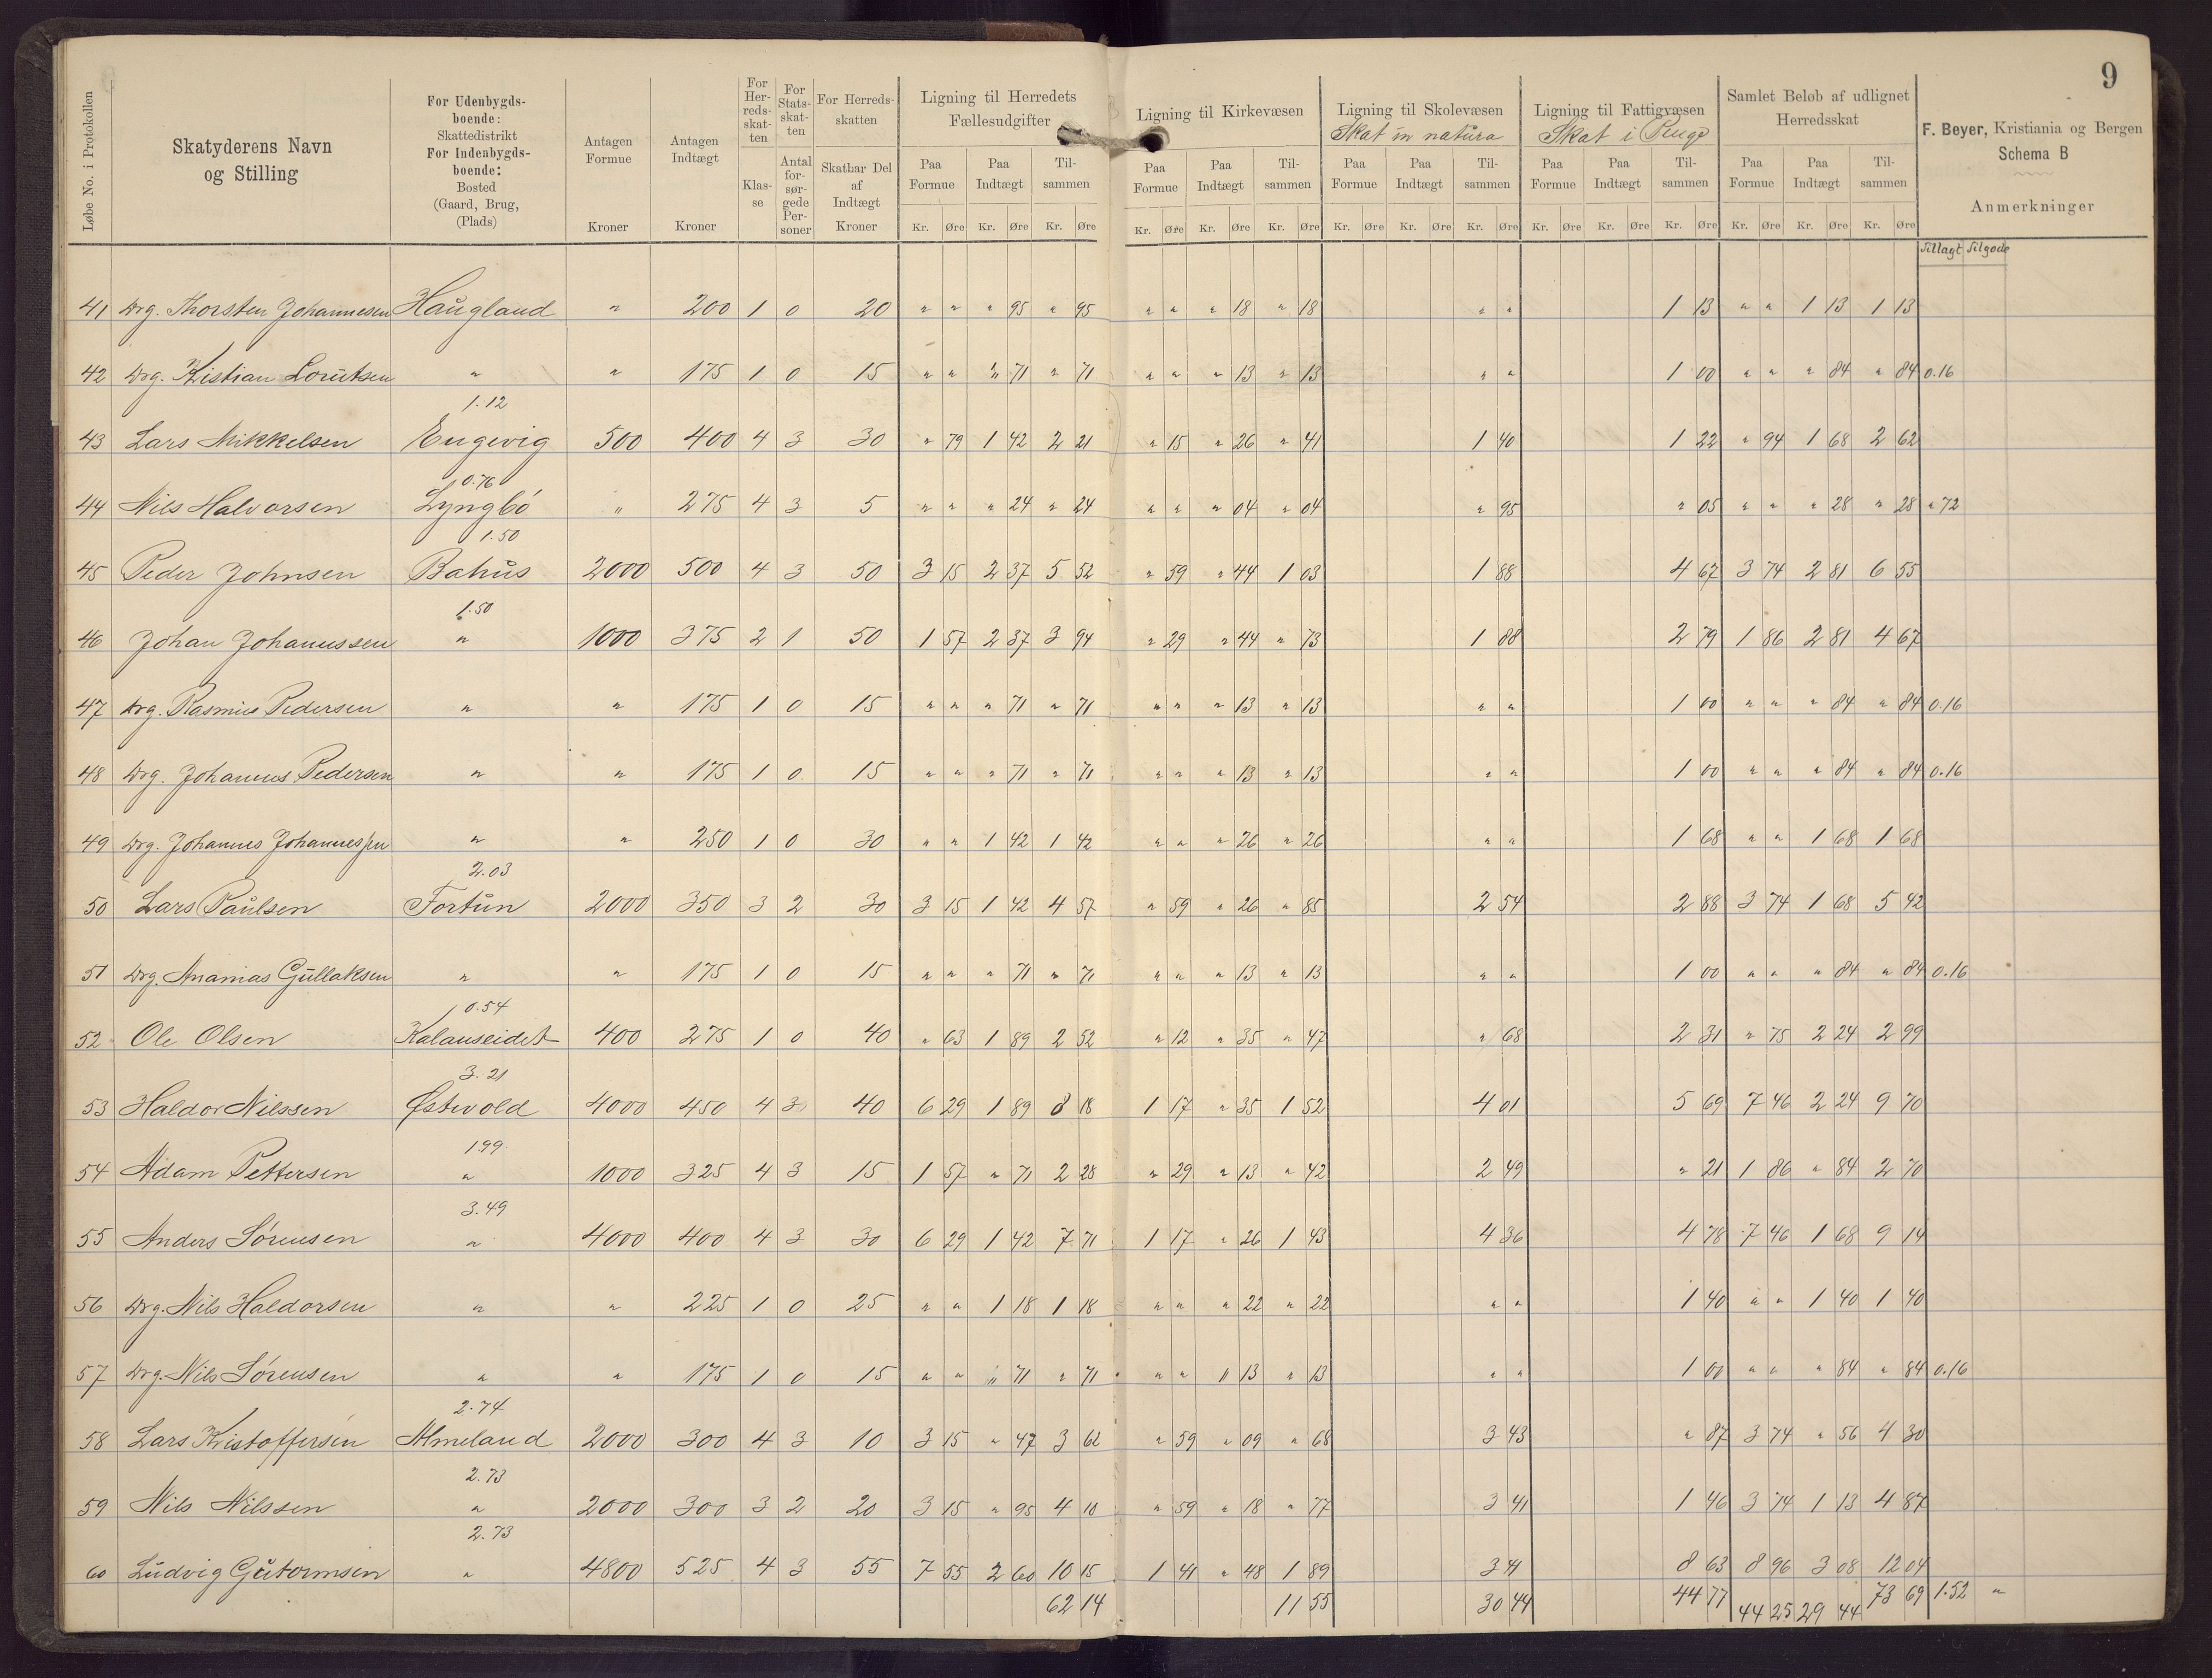 9
Løbe No. i Protokollen
Skatyderens Navn og Stilling
For Udenbygdsboende: Skattedistrikt For Indenbygdsboende: Bosted (Gaard, Brug, (Plads)
Antagen Formue Kroner
Antagen Indtægt Kroner
For Herredsskatten Klasse
For Statsskatten Antal forsørgede Personer
For Herredsskatten Skatbar Del af Indtægt Kroner
Ligning til Herredets Fællesudgifter
Paa Formue Paa Indtægt Tilsammen
Kr. Øre Kr. Øre Kr. Øre
Ligning til Kirkevæsen
Paa Formue Paa Indtægt Tilsammen
Kr. Øre Kr. Øre Kr. Øre
Ligning til Skolevæsen
Skat in natura
Paa Formue Paa Indtægt Tilsammen
Kr. Øre Kr. Øre Kr. Øre
Ligning til Fattigvæsen
Skat i Penge
Paa Formue Paa Indtægt Tilsammen
Kr. Øre Kr. Øre Kr. Øre
Samlet Beløb af udlignet Herredsskat
Paa Formue Paa Indtægt Tilsammen
Kr. Øre Kr. Øre Kr. Øre
F. Beyer, Kristiania og Bergen
Schema B
Anmerkninger
Tillagt Tilgode
41 Drg. Thorsten Johannesen Haugland " 200 1 0 20 " " " 95 " 95 " " " 18 " 18 " " 1 13 " " 1 13 1 13
42 Drg. Kristian Lorutsen " " 175 1 0 15 " " " 71 " 71 " " " 13 " 13 " " 1 00 " " " 84 " 84 0.16
1.12
43 Lars Mikkelsen Engevig 500 400 4 3 30 " 79 1 42 2 21 " 15 " 26 " 41 1 40 1 22 " 94 1 68 2 62
0.76
44 Nils Halvorsen Lyngbö " 275 4 3 5 " " " 24 " 24 " " " 04 " 04 " 95 " 05 " " " 28 " 28 " 72
1.50
45 Peder Johnsen Bahus 2000 500 4 3 50 3 15 2 37 5 52 " 59 " 44 1 03 1 88 4 67 3 74 2 81 6 55
1.50
46 Johan Johanussen " 1000 375 2 1 50 1 57 2 37 3 94 " 29 " 44 " 73 1 88 2 79 1 86 2 81 4 67
47 Drg. Rasmus Pedersen " " 175 1 0 15 " " " 71 " 71 " " " 13 " 13 " " 1 00 " " " 84 " 84 0.16
48 Drg. Johannes Pedersen " " 175 1 0 15 " " " 71 " 71 " " " 13 " 13 " " 1 00 " " " 84 " 84 0.16
49 Drg. Johannes Johannessen " " 250 1 0 30 " " 1 42 1 42 " " " 26 " 26 " " 1 68 " " 1 68 1 68
2.03
50 Lars Paulsen Fortun 2000 350 3 2 30 3 15 1 42 4 57 " 59 " 26 " 85 2 54 2 88 3 74 1 68 5 42
51 Drg. Ananias Gullaksen " " 175 1 0 15 " " " 71 " 71 " " " 13 " 13 " " 1 00 " " " 84 " 84 0.16
0.54
52 Ole Olsen Kalauseidet 400 275 1 0 40 " 63 1 89 2 52 " 12 " 35 " 47 " 68 2 31 " 75 2 24 2 99
3.21
53 Haldor Nilssen Østevold 4000 450 4 3 40 6 29 1 89 8 18 1 17 " 35 1 52 4 01 5 69 7 46 2 24 9 70
1.99
54 Adam Pettersen " 1000 325 4 3 15 1 57 " 71 2 28 " 29 " 13 " 42 2 49 " 21 1 86 " 84 2 70
3.49
55 Anders Sörensen " 4000 400 4 3 30 6 29 1 42 7 71 1 17 " 26 1 43 4 36 4 78 7 46 1 68 9 14
56 Drg. Nils Haldorsen " " 225 1 0 25 " " 1 18 1 18 " " " 22 " 22 " " 1 40 " " 1 40 1 40
57 Drg. Nils Sörensen " " 175 1 0 15 " " " 71 " 71 " " " 13 " 13 " " 1 00 " " " 84 " 84 0.16
2.74
58 Lars Kristoffersen Almeland 2000 300 4 3 10 3 15 " 47 3 62 " 59 " 09 " 68 3 43 " 87 3 74 " 56 4 30
2.73
59 Nils Nilssen " 2000 300 3 2 20 3 15 " 95 4 10 " 59 " 18 " 77 3 41 1 46 3 74 1 13 4 87
2.73
60 Ludvig Gutormsen " 4800 525 4 3 55 7 55 2 60 10 15 1 41 " 48 1 89 3 41 8 63 8 96 3 08 12 04
62 14 11 55 30 44 44 77 44 25 29 44 73 69 1.52 "